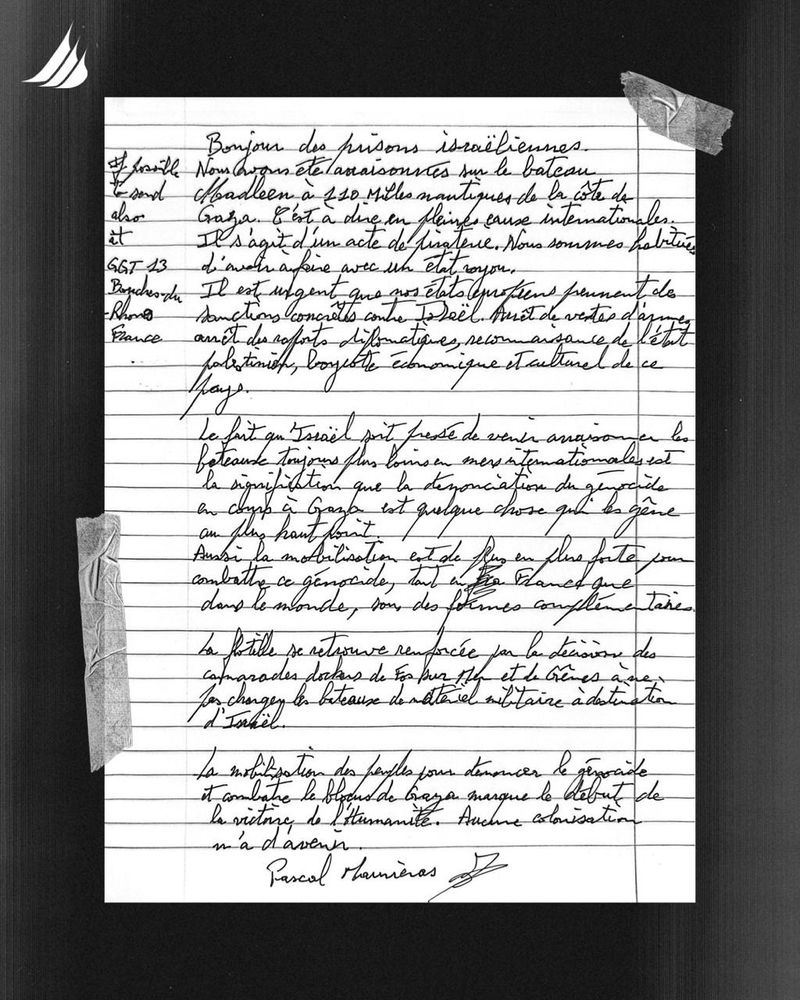 Bonjour des prisons israëliennes.
Nous avons été arraisonnés sur le bateau
Madleen à 110 Milles nautiques de la côte de
Gaza. C'est à dire en pleines eause internationales.
Il s'agit d'un acte de piraterie. Nous sommes habitués
d'avoir à faire avec un état voyou.
Il est urgent que nos états européens prennent des
sanctions concrètes contre Israël. Arrêt de ventes d'armes,
arrêt des raports diplomatiques, reconnaissance de l'état
palestinien, boycotte économique et culturel de ce
pays.
If possible
to send
also
at
GGT 13
Bouches-du
-Rhone
France
Le fait qu'Israël soit pressé de venir arraisonner les
bateause toujours plus loins en mers internationales est
la signification que la denonciation du génocide
en cours à Gaza est quelque chose qui les gêne
au plus haut point.
Aussi la mobilisation est de plus en plus forte pour
combattre ce génocide, tant en France que
dans le monde, sous des formes complémentaires.
La flotille se retrouve renforcée par la décision des
camarades dockers de Fos sur Mer et de Gênes à ne
pas charger les bateause de matériel militaire à destination
d'Israël.
La mobilisation des peuples pour dénoncer le génocide
et combatre le blocus de Gaza marque le début de
la victoire de l'Humanité. Aucune colonisation
n'a d'avenir.
Pascal Maurieras